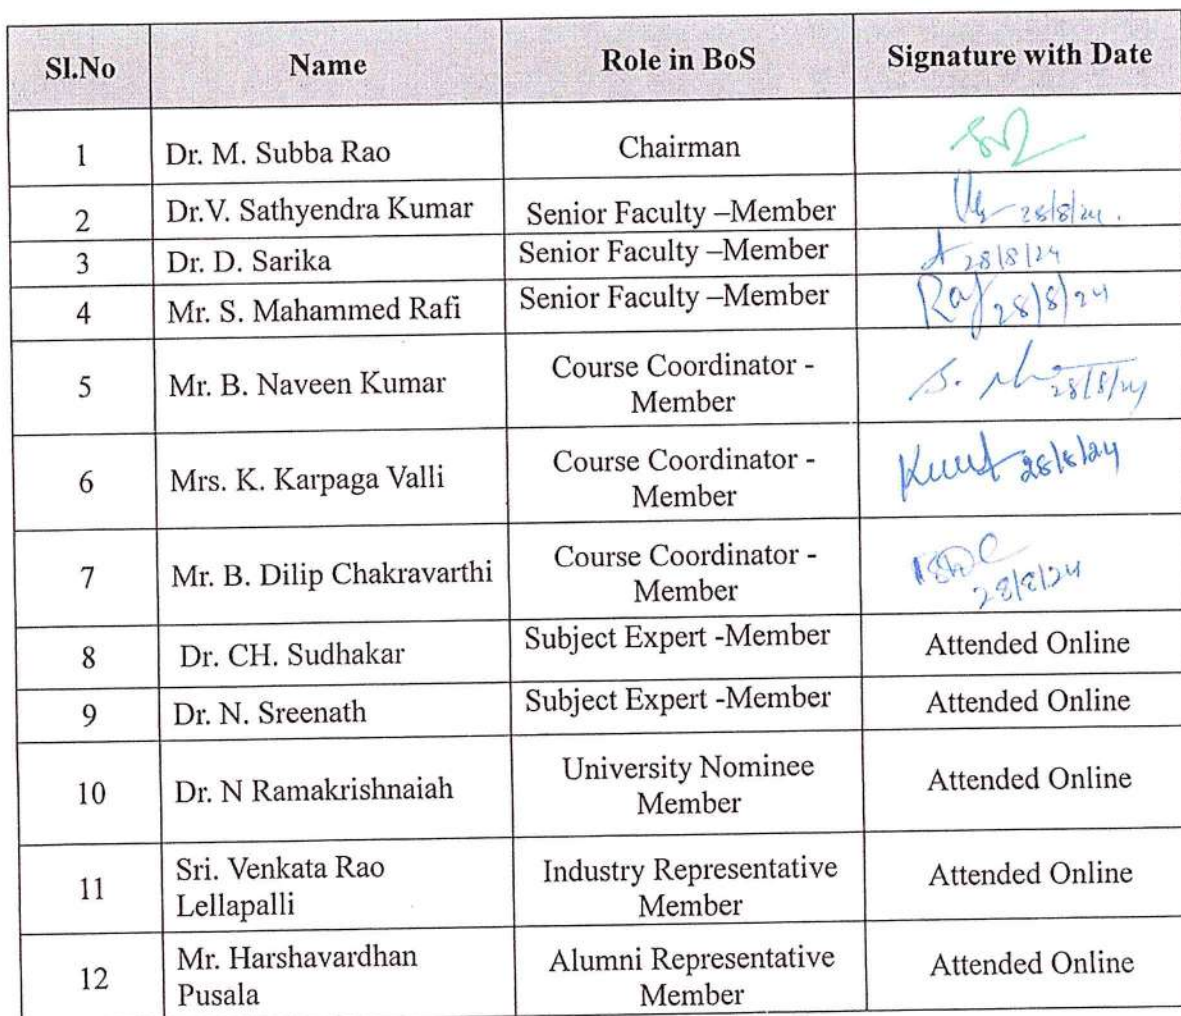 Sl.No Name Role in BoS Signature with Date
1 Dr. M. Subba Rao Chairman
2 Dr.V. Sathyendra Kumar Senior Faculty –Member 28/8/24.
3 Dr. D. Sarika Senior Faculty –Member 28/8/24
4 Mr. S. Mahammed Rafi Senior Faculty –Member 28/8/24
5 Mr. B. Naveen Kumar Course Coordinator -
Member 28/8/24
6 Mrs. K. Karpaga Valli Course Coordinator -
Member 28/8/24
7 Mr. B. Dilip Chakravarthi Course Coordinator -
Member 28/8/24
8 Dr. CH. Sudhakar Subject Expert -Member Attended Online
9 Dr. N. Sreenath Subject Expert -Member Attended Online
10 Dr. N Ramakrishnaiah University Nominee
Member Attended Online
11 Sri. Venkata Rao
Lellapalli Industry Representative
Member Attended Online
12 Mr. Harshavardhan
Pusala Alumni Representative
Member Attended Online